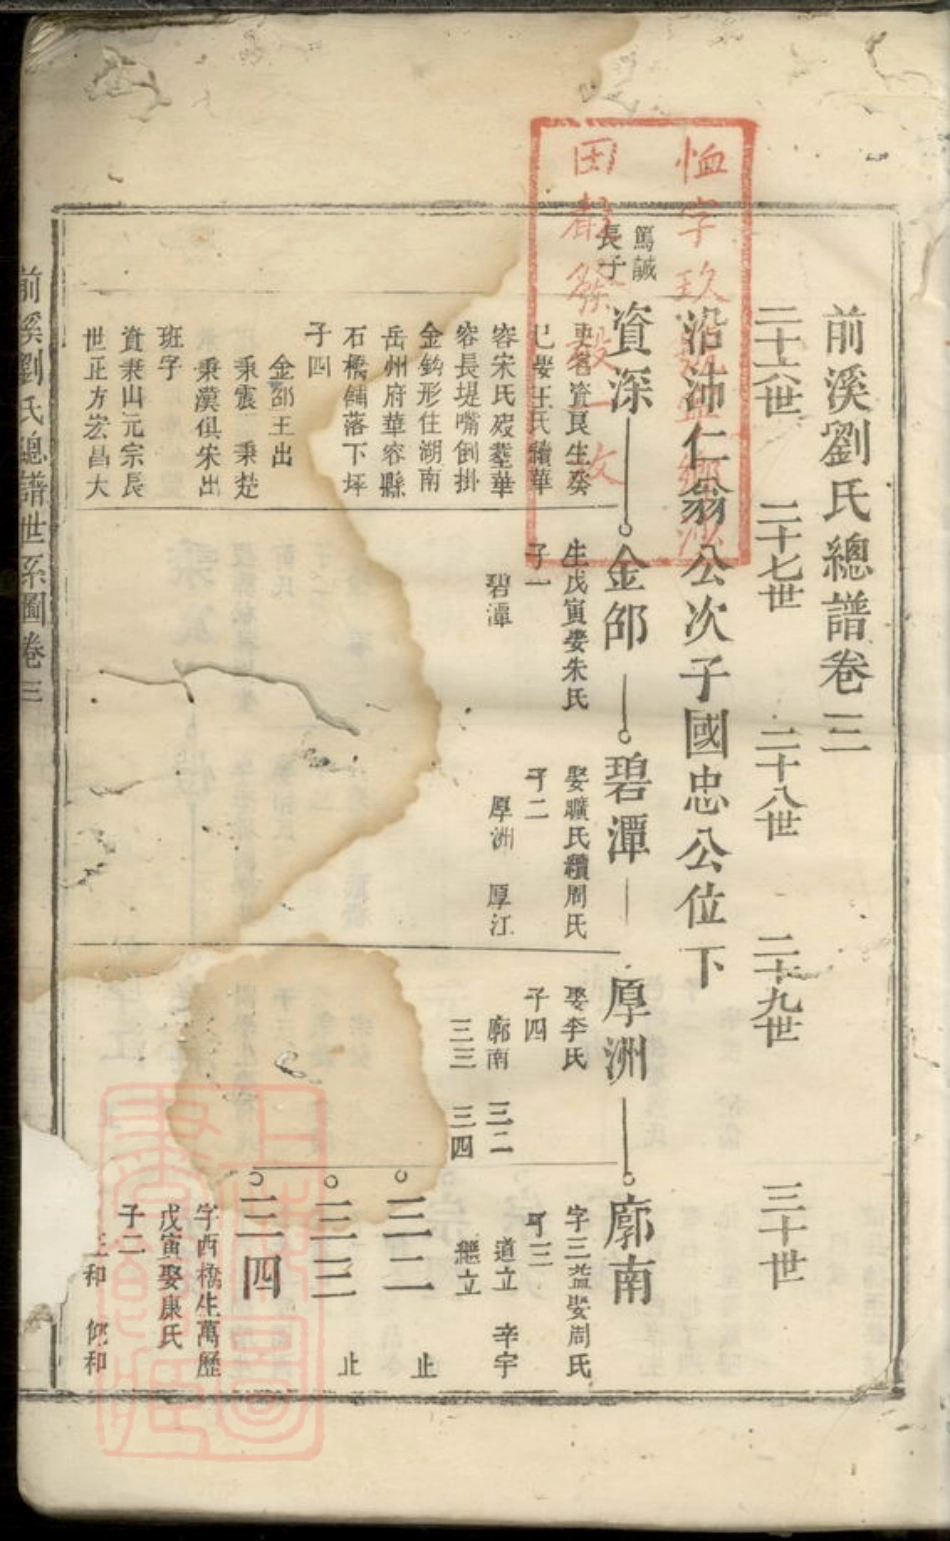 前溪劉氏總譜卷三
二十六世 二十七世 二十八世 二十九世 三十世
沿沛仁翁公次子國忠公位下
篤誠
長子
資深 金邵 碧潭 厚洲 廓南
更名資良生癸
巳娶王氏續華
容宋氏歿塟華
容長堤嘴倒掛
金鈎形住湖南
岳州府華容縣
石橋鋪落下坪
子四
金邵王出
秉震 秉楚
秉漢俱宋出
班字
資秉山元宗長
世正方宏昌大
生戊寅娶朱氏
子一
碧潭
娶曠氏續周氏
子二
厚洲 厚江
娶李氏
子四
廓南 三二
三三 三四
字三益娶周氏
子三
道立 辛宇
繼立
三二 止
三三 止
三四
字西橋生萬歷
戊寅娶康氏
子二
和 和
前溪劉氏總譜世系圖卷三
恤字
一